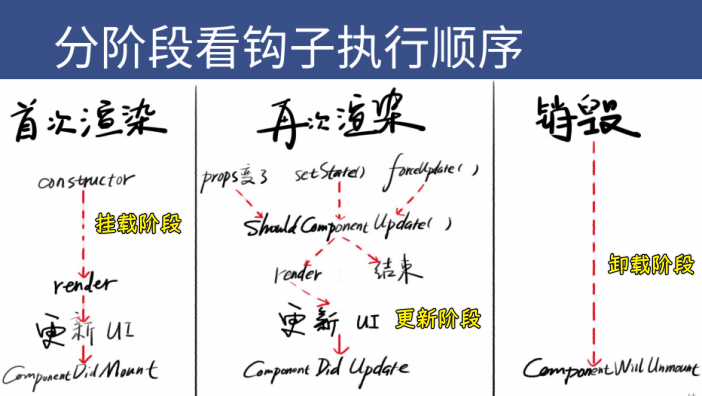 分阶段看钩子执行顺序
首次渲染
constructor
挂载阶段
render
更新 UI
ComponentDidMount
再次渲染
props变了 setState() forceUpdate()
ShouldComponentUpdate()
render 结束
更新 UI 更新阶段
Component Did Update
销毁
卸载阶段
ComponentWillUnmount